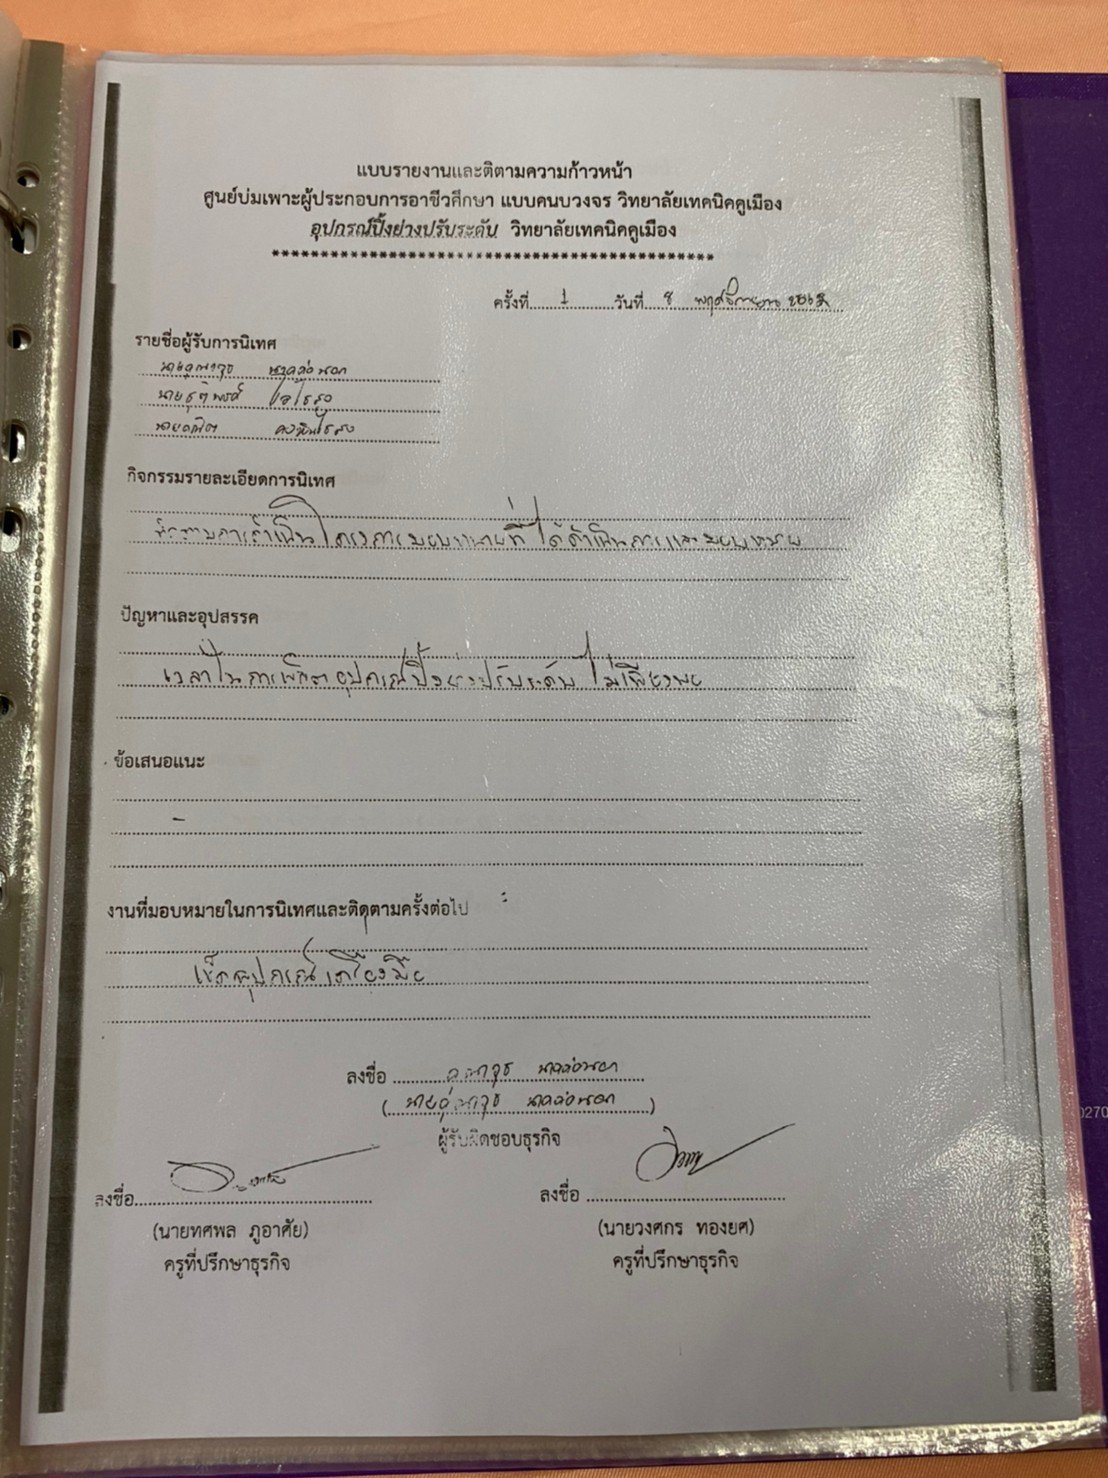 แบบรายงานและติตามความก้าวหน้า
ศูนย์บ่มเพาะผู้ประกอบการอาชีวศึกษา แบบคนบวงจร วิทยาลัยเทคนิคคูเมือง
อุปกรณ์ปิ้งย่างปรับระดับ วิทยาลัยเทคนิคคูเมือง
******************************************
ครั้งที่ 1 วันที่ 8 พฤศจิกายน
รายชื่อผู้รับการนิเทศ
นาย
นาย
นาย
กิจกรรมรายละเอียดการนิเทศ
ที่ได้ดำเนินการและมอบหมาย
ปัญหาและอุปสรรค
เวลาในการผลิตอุปกรณ์ปิ้งย่างปรับระดับ ไม่เพียงพอ
ข้อเสนอแนะ
-
งานที่มอบหมายในการนิเทศและติดตามครั้งต่อไป
เช็คอุปกรณ์เครื่องมือ
ลงชื่อ
ผู้รับผิดชอบธุรกิจ
ลงชื่อ ลงชื่อ
(นายทศพล ภูอาศัย) (นายวงศกร ทองยศ)
ครูที่ปรึกษาธุรกิจ ครูที่ปรึกษาธุรกิจ